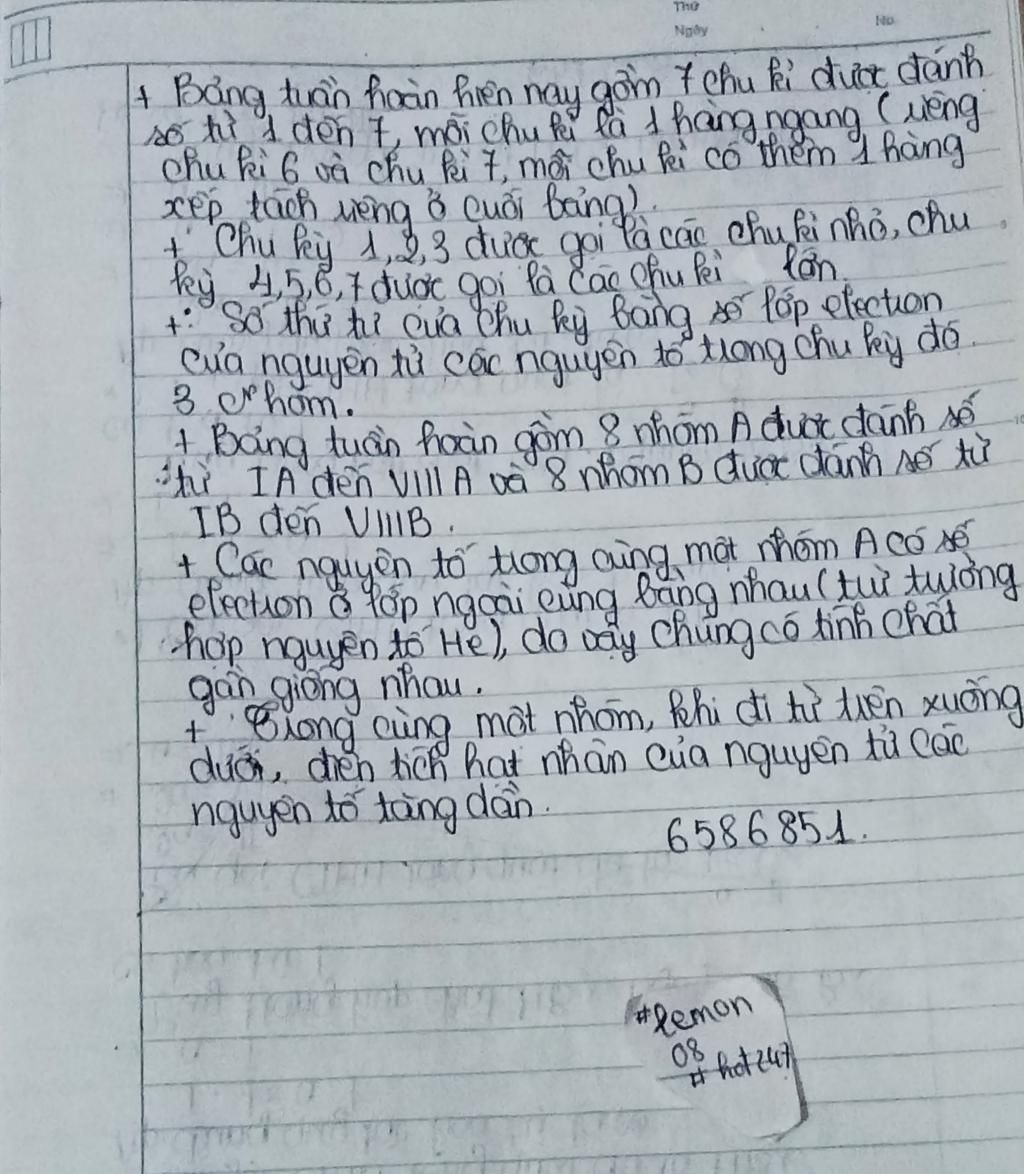 Thứ
Ngày
No.
+ Bảng tuần hoàn hiện nay gồm 7 chu kì được đánh
số từ 1 đến 7, mỗi chu kì là 1 hàng ngang (riêng
chu kì 6 và chu kì 7, mỗi chu kì có thêm 1 hàng
xếp tách riêng ở cuối bảng).
+ Chu kỳ 1,2,3 được gọi là các chu kì nhỏ, chu
kỳ 4,5,6,7 được gọi là các chu kì lớn.
+ Số thứ tự của chu kỳ bằng số lớp electron
của nguyên tử các nguyên tố trong chu kỳ đó.
3 Nhóm.
+ Bảng tuần hoàn gồm 8 nhóm A được đánh số
từ IA đến VIIIA và 8 nhóm B được đánh số từ
IB đến VIIIB.
+ Các nguyên tố trong cùng một nhóm A có số
electron ở lớp ngoài cùng bằng nhau (trừ trường
hợp nguyên tố He), do vậy chúng có tính chất
gần giống nhau.
+ Trong cùng một nhóm, khi đi từ trên xuống
dưới, điện tích hạt nhân của nguyên tử các
nguyên tố tăng dần.
6586851.
#lemon
08
# hot247